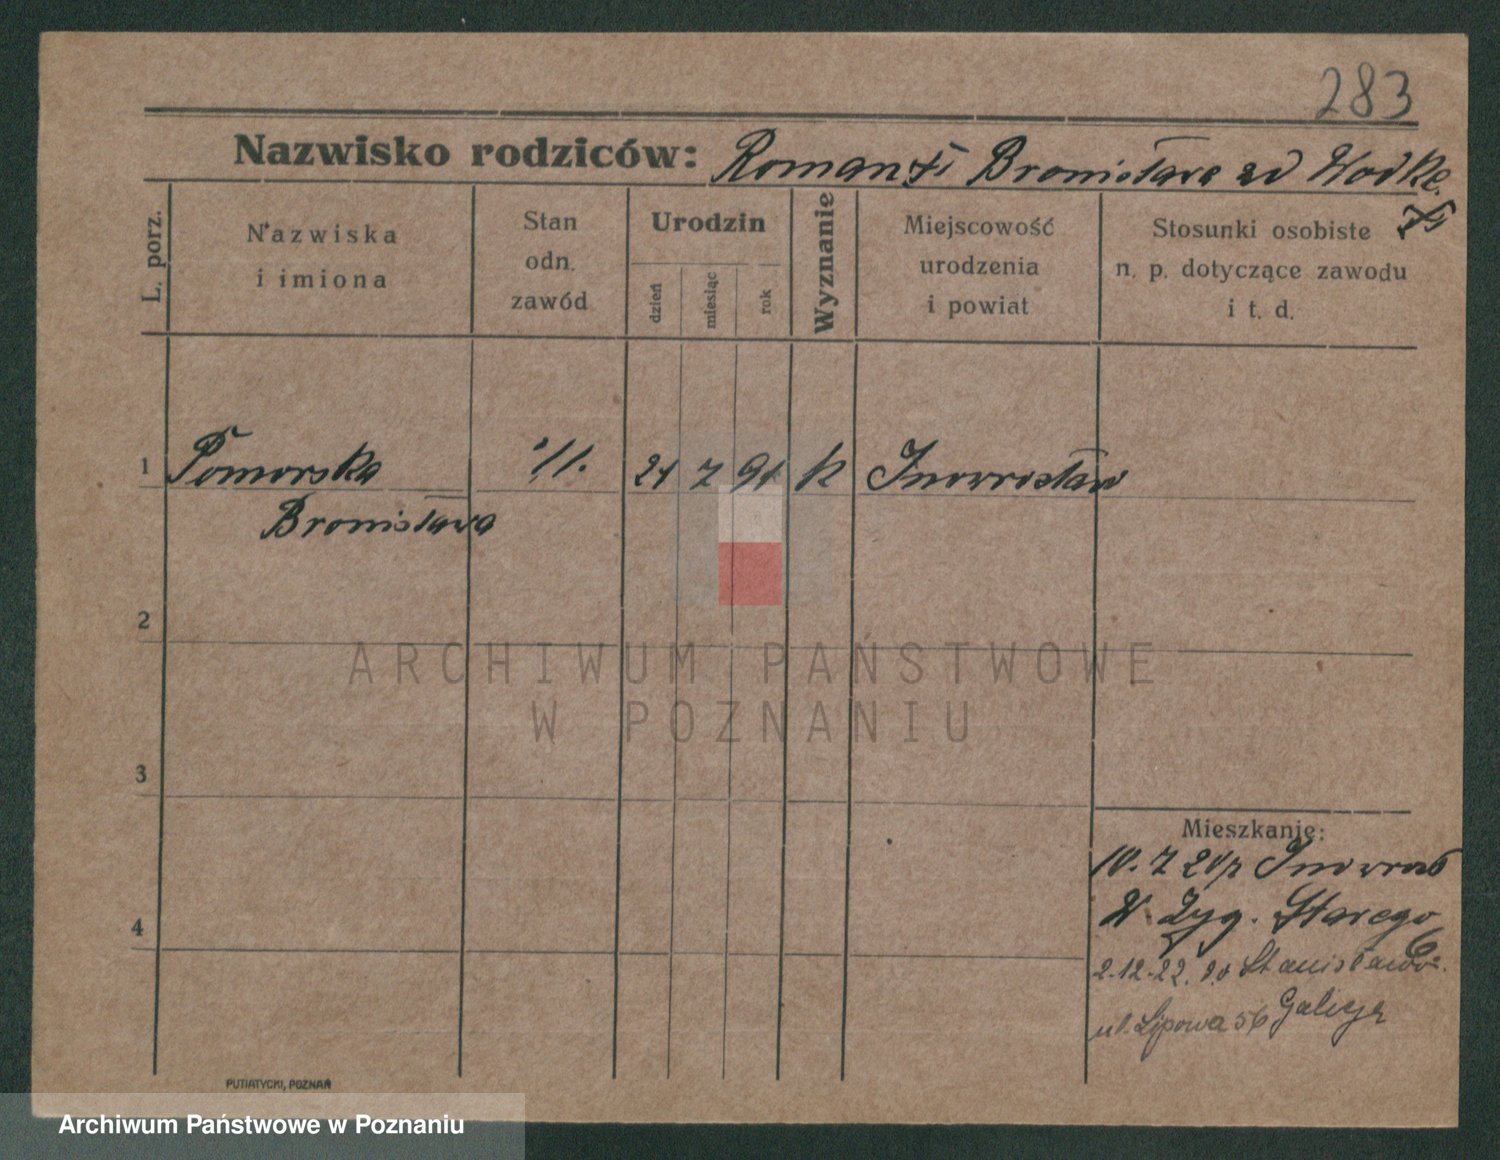 283
Nazwisko rodziców: Roman i Bronisława zd
L. porz.
Nazwiska
i imiona
Stan
odn.
zawód
Urodzin
dzień
miesiąc
rok
Wyznanie
Miejscowość
urodzenia
i powiat
Stosunki osobiste
n. p. dotyczące zawodu
i t. d.
1 Pomorska 21 7 91 k Inowrocław
Bronisława
2
3
4
Mieszkanie:
10. 7 21
Zyg. Starego
2.12.22. Stanisławów
ul. Lipowa 56 Galicya
PUTIATYCKI, POZNAŃ
ARCHIWUM PAŃSTWOWE
W POZNANIU
Archiwum Państwowe w Poznaniu